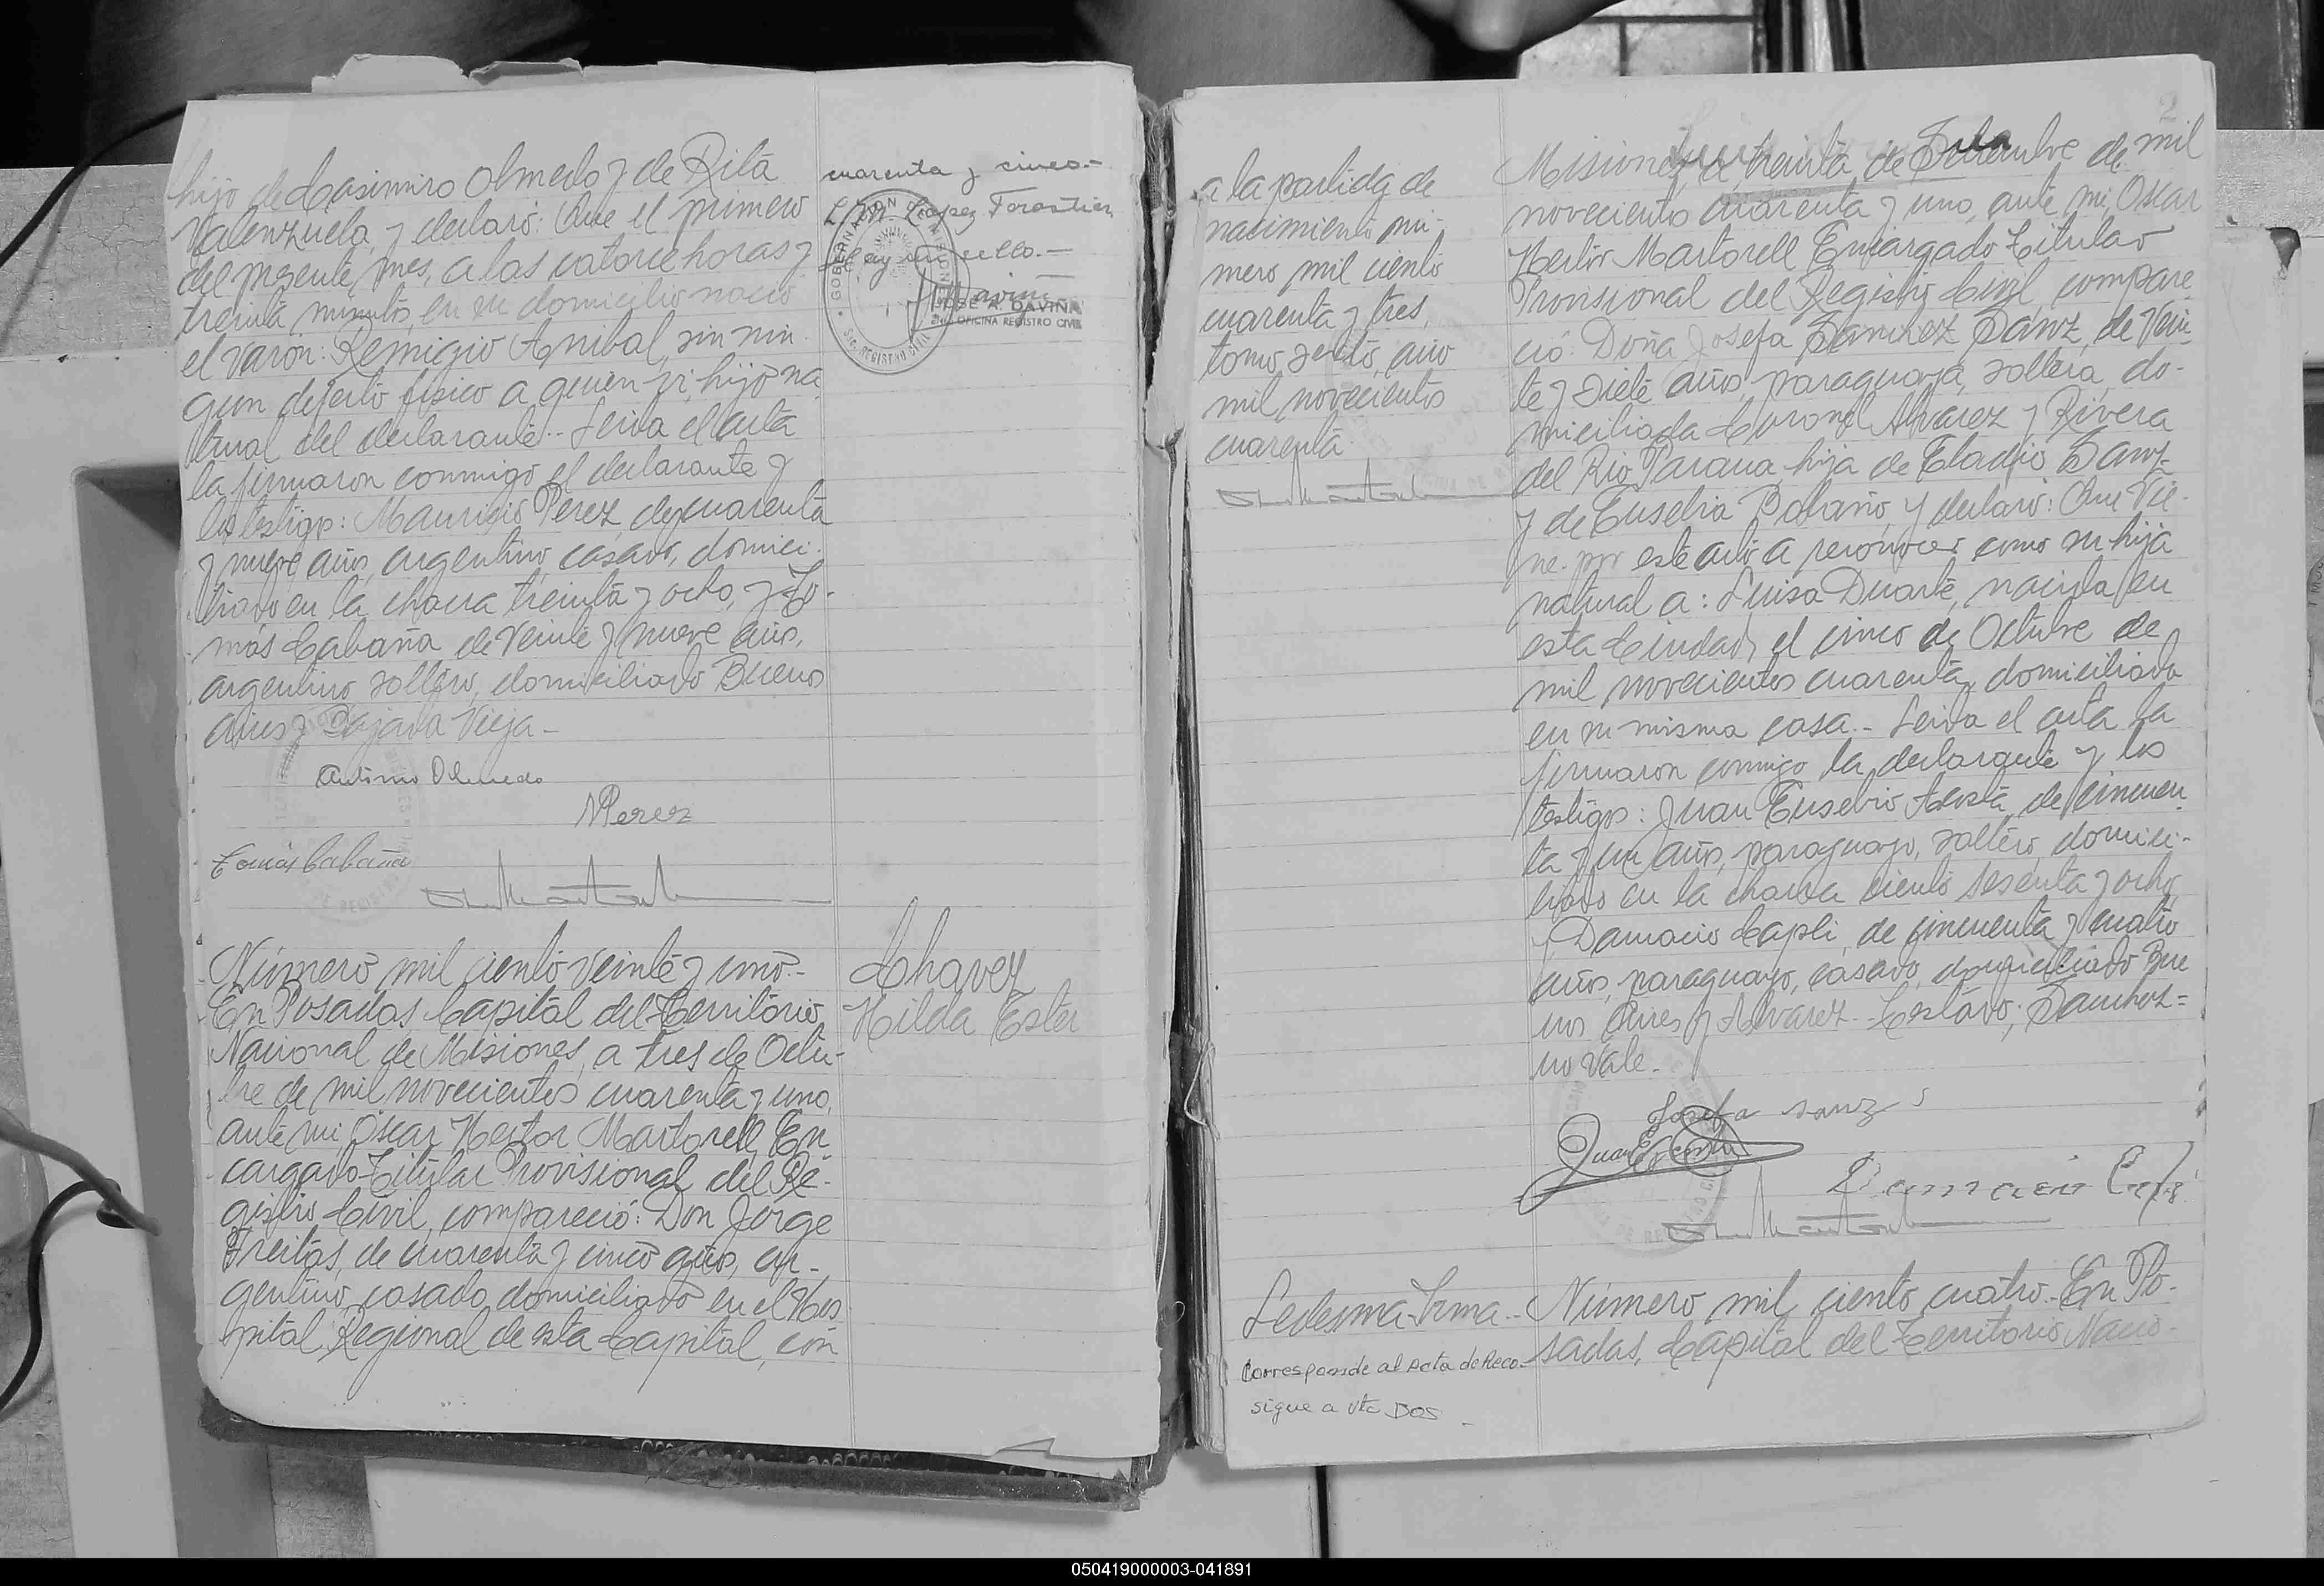 hijo de Casimiro Olmedo y de Rita
Valenzuela, y declaró: Que el primero
del presente mes, a las catorce horas y
treinta minutos, en su domicilio nació
el varón: Remigio Anibal, sin nin-
gun defecto físico a quien
tural del declarante.- Leida el acta
la firmaron conmigo el declarante y
los testigos: Mauricio Perez, de cuarenta
y nueve años, argentino, casado, domici-
liado en la chacra treinta y ocho, y To-
más Cabaña de veinte y nueve años,
argentino, soltero, domiciliado Buenos
Aires y Bajada Vieja.-
Antonio Olmedo
MPerez
Tomás Cabaña
cuarenta y cinco.-
Lopez Forastier
hay un sello.-
GOBERNACION DE MISIONES
REGISTRO CIVIL
JOSE A. DAVIÑA
OFICINA REGISTRO CIVIL
Número mil ciento veinte y uno.-
En Posadas, Capital del Territorio
Nacional de Misiones, a tres de Octu-
bre de mil novecientos cuarenta y uno,
ante mi, Oscar Hector Martorell, En-
cargado Titular Provisional del Re-
gistro Civil, compareció: Don Jorge
Freitas, de cuarenta y cinco años, ar-
gentino, casado, domiciliado en el Hos
pital Regional de esta Capital, con
Chavez
Hilda Ester
a la partida de
nacimiento nú-
mero mil ciento
cuarenta y tres,
tomo sexto, año
mil novecientos
cuarenta
Misiones, a treinta de Setiembre de mil
novecientos cuarenta y uno, ante mi, Oscar
Hector Martorell Encargado Titular
Provisional del Registro Civil, compare
ció: Doña Josefa Sanchez Sanz, de vein-
te y siete años, paraguaya, soltera, do-
miciliada Coronel Alvarez y Rivera
del Rio Parana, hija de Eladio Sanz
y de Eusebia Bolaño, y declaró: Que vie-
ne por este acto a reconocer como su hija
natural a: Luisa Duarte, nacida en
esta Ciudad, el cinco de Octubre de
mil novecientos cuarenta, domiciliada
en su misma casa.- Leida el acta la
firmaron conmigo la declarante y los
testigos: Juan Eusebio Acosta, de cincuen
ta y un años, paraguayo, soltero, domici-
liado en la chacra ciento sesenta y ocho,
y Damacio Capli, de cincuenta y cuatro
años, paraguayo, casado, domiciliado Bue
nos Aires y Alvarez.- Testado: Sanchez=
no vale.-
Josefa Sanz
Juan E Acosta
Damacio
Ledesma-Irma.-
Corresponde al acta de Reco-
sigue a vta DOS
Número mil ciento cuatro.- En Po-
sadas, Capital del Territorio Nacio-
050419000003-041891